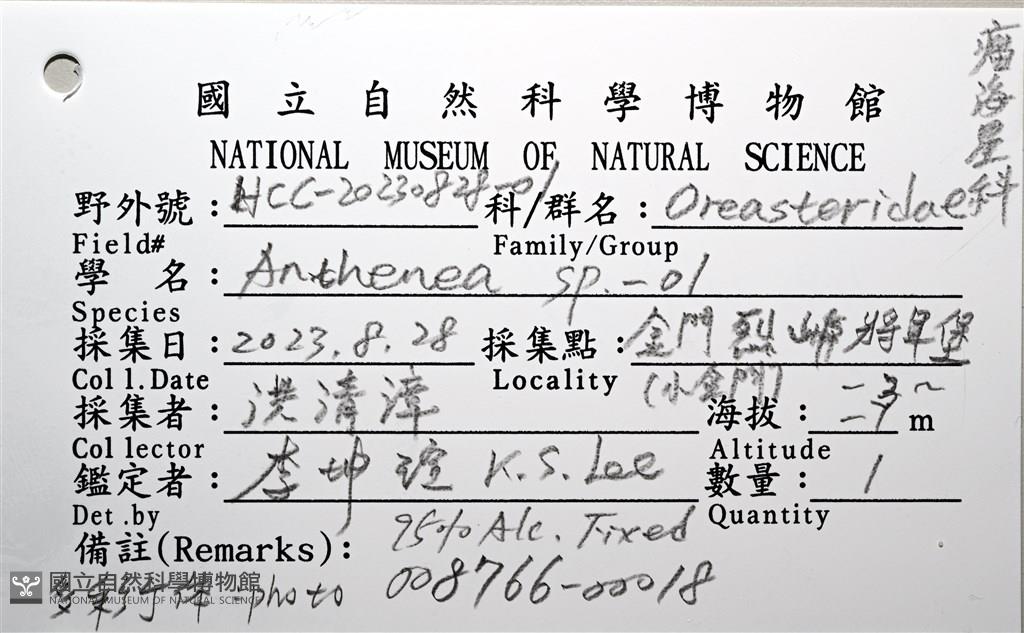 瘤海星科
國立自然科學博物館
NATIONAL MUSEUM OF NATURAL SCIENCE
野外號：HCC-20230828-01 科/群名：Oreasteridae
Field# Family/Group
學 名：Anthenea sp.-01
Species
採集日：2023.8.28 採集點：金門烈嶼將軍堡
Coll.Date Locality (小金門)
採集者：洪清漳 海拔：-3~-7 m
Collector Altitude
鑑定者：李坤瑄 K.S.Lee 數量：1
Det.by Quantity
備註(Remarks)：95% Alc. Fixed
photo 008766-00018
國立自然科學博物館
NATIONAL MUSEUM OF NATURAL SCIENCE